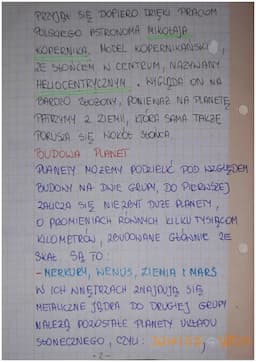 PRZYJĄŁ SIĘ DOPIERO DZIĘKI PRACOM
POLSKIEGO ASTRONOMA MIKOŁAJA
KOPERNIKA. MODEL KOPERNIKAŃSKI,
ZE SŁOŃCEM W CENTRUM, NAZYWANY
HELIOCENTRYCZNYM. WYGLĄDA ON NA
BARDZO ZŁOŻONY, PONIEWAŻ NA PLANETĘ
PATRZYMY Z ZIEMII, KTÓRA SAMA TAKŻE
PORUSZA SIĘ WOKÓŁ SŁOŃCA.
BUDOWA PLANET
PLANETY MOŻEMY PODZIELIĆ POD WZGLĘDEM
BUDOWY NA DWIE GRUPY, DO PIERWSZEJ
ZALICZA SIĘ NIEZBYT DUŻE PLANETY,
O PROMIENIACH RÓWNYCH KILKU TYSIĄCOM
KILOMETRÓW, ZBUDOWANE GŁÓWNIE ZE
SKAŁ. SĄ TO:
- MERKURY, WENUS, ZIEMIA I MARS
W ICH WNĘTRZACH ZNAJDUJĄ SIĘ
METALICZNE JĄDRA DO DRUGIEJ GRUPY
NALEŻĄ POZOSTAŁE PLANETY UKŁADU
SŁONECZNEGO, CZYLI:
- 2 -